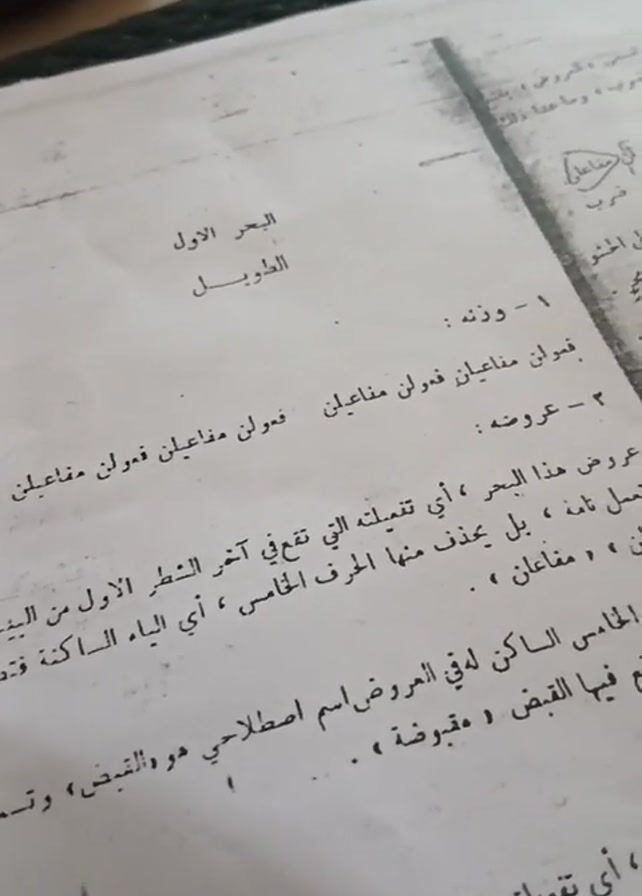 البحر الاول
الطويـــل
١ - وزنه :
فعولن مفاعيلن فعولن مفاعيلن فعولن مفاعيلن فعولن مفاعيلن
٢ - عروضه :
عروض هذا البحر ، أي تفعيلته التي تقع في آخر الشطر الاول من
تامة ، بل يحذف منها الحرف الخامس ، أي الياء الساكنة
« مفاعلن » .
الخامس الساكن له في العروض اسم اصطلاحي هو «القبض»
فيها القبض « مقبوضة » .
، أي
مفاعلن
ضرب